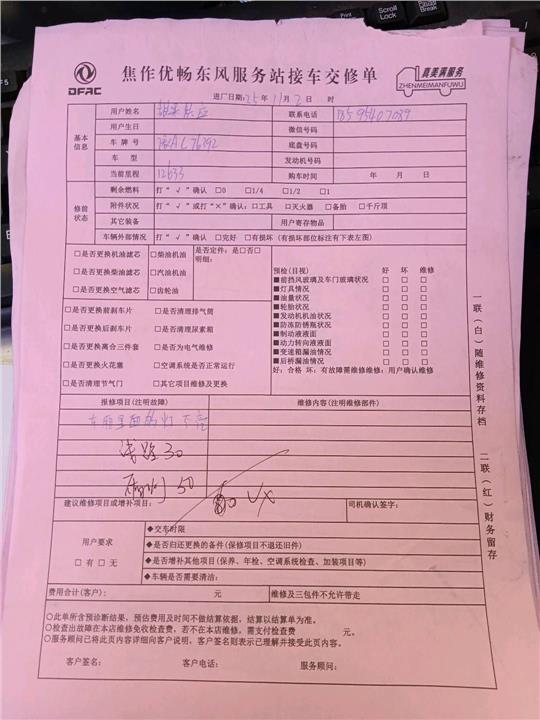 DFAC
焦作优畅东风服务站接车交修单
真美满服务
ZHENMEIMANFUWU
进厂日期:25年11月2日 时
基本信息
用户姓名 联系电话
用户生日 微信号码
车牌号 底盘号码
车型 发动机号码
当前里程 12633 购车时间 年 月 日
修前状态
剩余燃料 打“√”确认 □0 □1/4 □1/2 □1
附件状况 打“√”或打“×”确认:□工具 □灭火器 □备胎 □千斤顶
其它装备 用户寄存物品
车辆外部情况 打“√”确认 □完好 □有损坏(有损坏部位标注有下表左图)
□是否更换机油滤芯 □柴油机油 是否定件:是□否□
明细:
□是否更换柴油滤芯 □汽油机油
□是否更换空气滤芯 □齿轮油
预检(目视) 好 坏 维修
■前挡风玻璃及车门玻璃状况 □ □ □
■灯具情况 □ □ □
■油量状况 □ □ □
■轮胎状况 □ □ □
■发动机机油状况 □ □ □
■防冻防锈瓶状况 □ □ □
■制动液液面 □ □ □
■动力转向液液面 □ □ □
■变速箱漏油情况 □ □ □
■后桥漏油情况 □ □ □
好:合格 坏:有故障需维修维修:用户确认维修
□是否更换前刹车片 □是否清理排气筒
□是否更换后刹车片 □是否清理尿素箱
□是否更换离合三件套 □是否为电气维修
□是否更换火花塞 □空调系统是否正常运行
□是否清理节气门 □其它项目维修及更换
报修项目(注明故障) 维修内容(注明维修部件)
灯不亮
线路30
50
建议维修项目或增补项目: 司机确认签字:
用户要求
□有 □无
◆交车时限
◆是否归还更换的备件(保修项目不退还旧件)
◆是否增补其他项目(保养、年检、空调系统检查、加装项目等)
◆车辆是否需要清洁:
费用合计(客户): 元 维修及三包件不允许带走
○此单所含预诊断结果,预估费用及时间不做结算依据,结算以结算单为准。
○检查出故障在本店维修免收检查费,若不在本店维修,需支付检查费 元。
○服务顾问已将此页内容详细向客户说明,客户签名则表示已理解并接受此页内容。
客户签名: 客户电话: 服务顾问:
一联(白)随维修资料存档
二联(红)财务留存